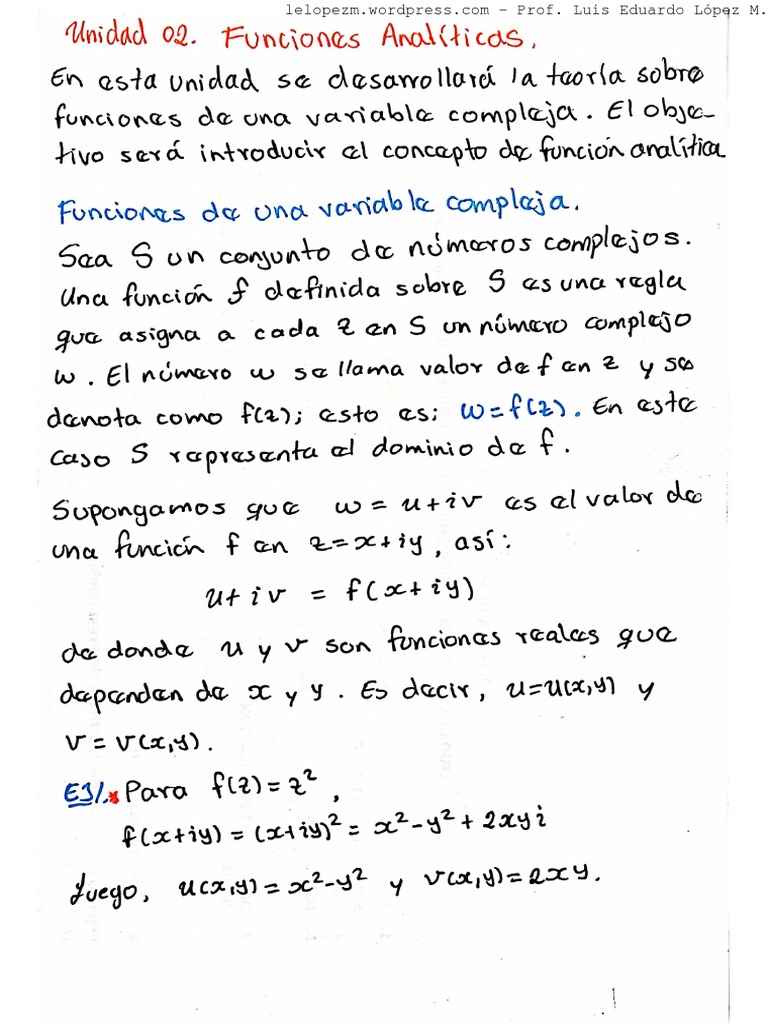 lelopezm.wordpress.com – Prof. Luis Eduardo López M.
Unidad 02. Funciones Analíticas.
En esta unidad se desarrollará la teoría sobre
funciones de una variable compleja. El obje-
tivo será introducir el concepto de función analítica
Funciones de una variable compleja.
Sea S un conjunto de números complejos.
Una función f definida sobre S es una regla
que asigna a cada z en S un número complejo
w. El número w se llama valor de f en z y se
denota como f(z); esto es: w=f(z). En este
caso S representa el dominio de f.
Supongamos que w = u+iv es el valor de
una función f en z=x+iy, así:
u+iv = f(x+iy)
de donde u y v son funciones reales que
dependen de x y y. Es decir, u=u(x,y) y
v = v(x,y).
Ej/.* Para f(z)=z²,
f(x+iy) = (x+iy)² = x²-y²+2xyi
Luego, u(x,y)=x²-y² y v(x,y)=2xy.
1